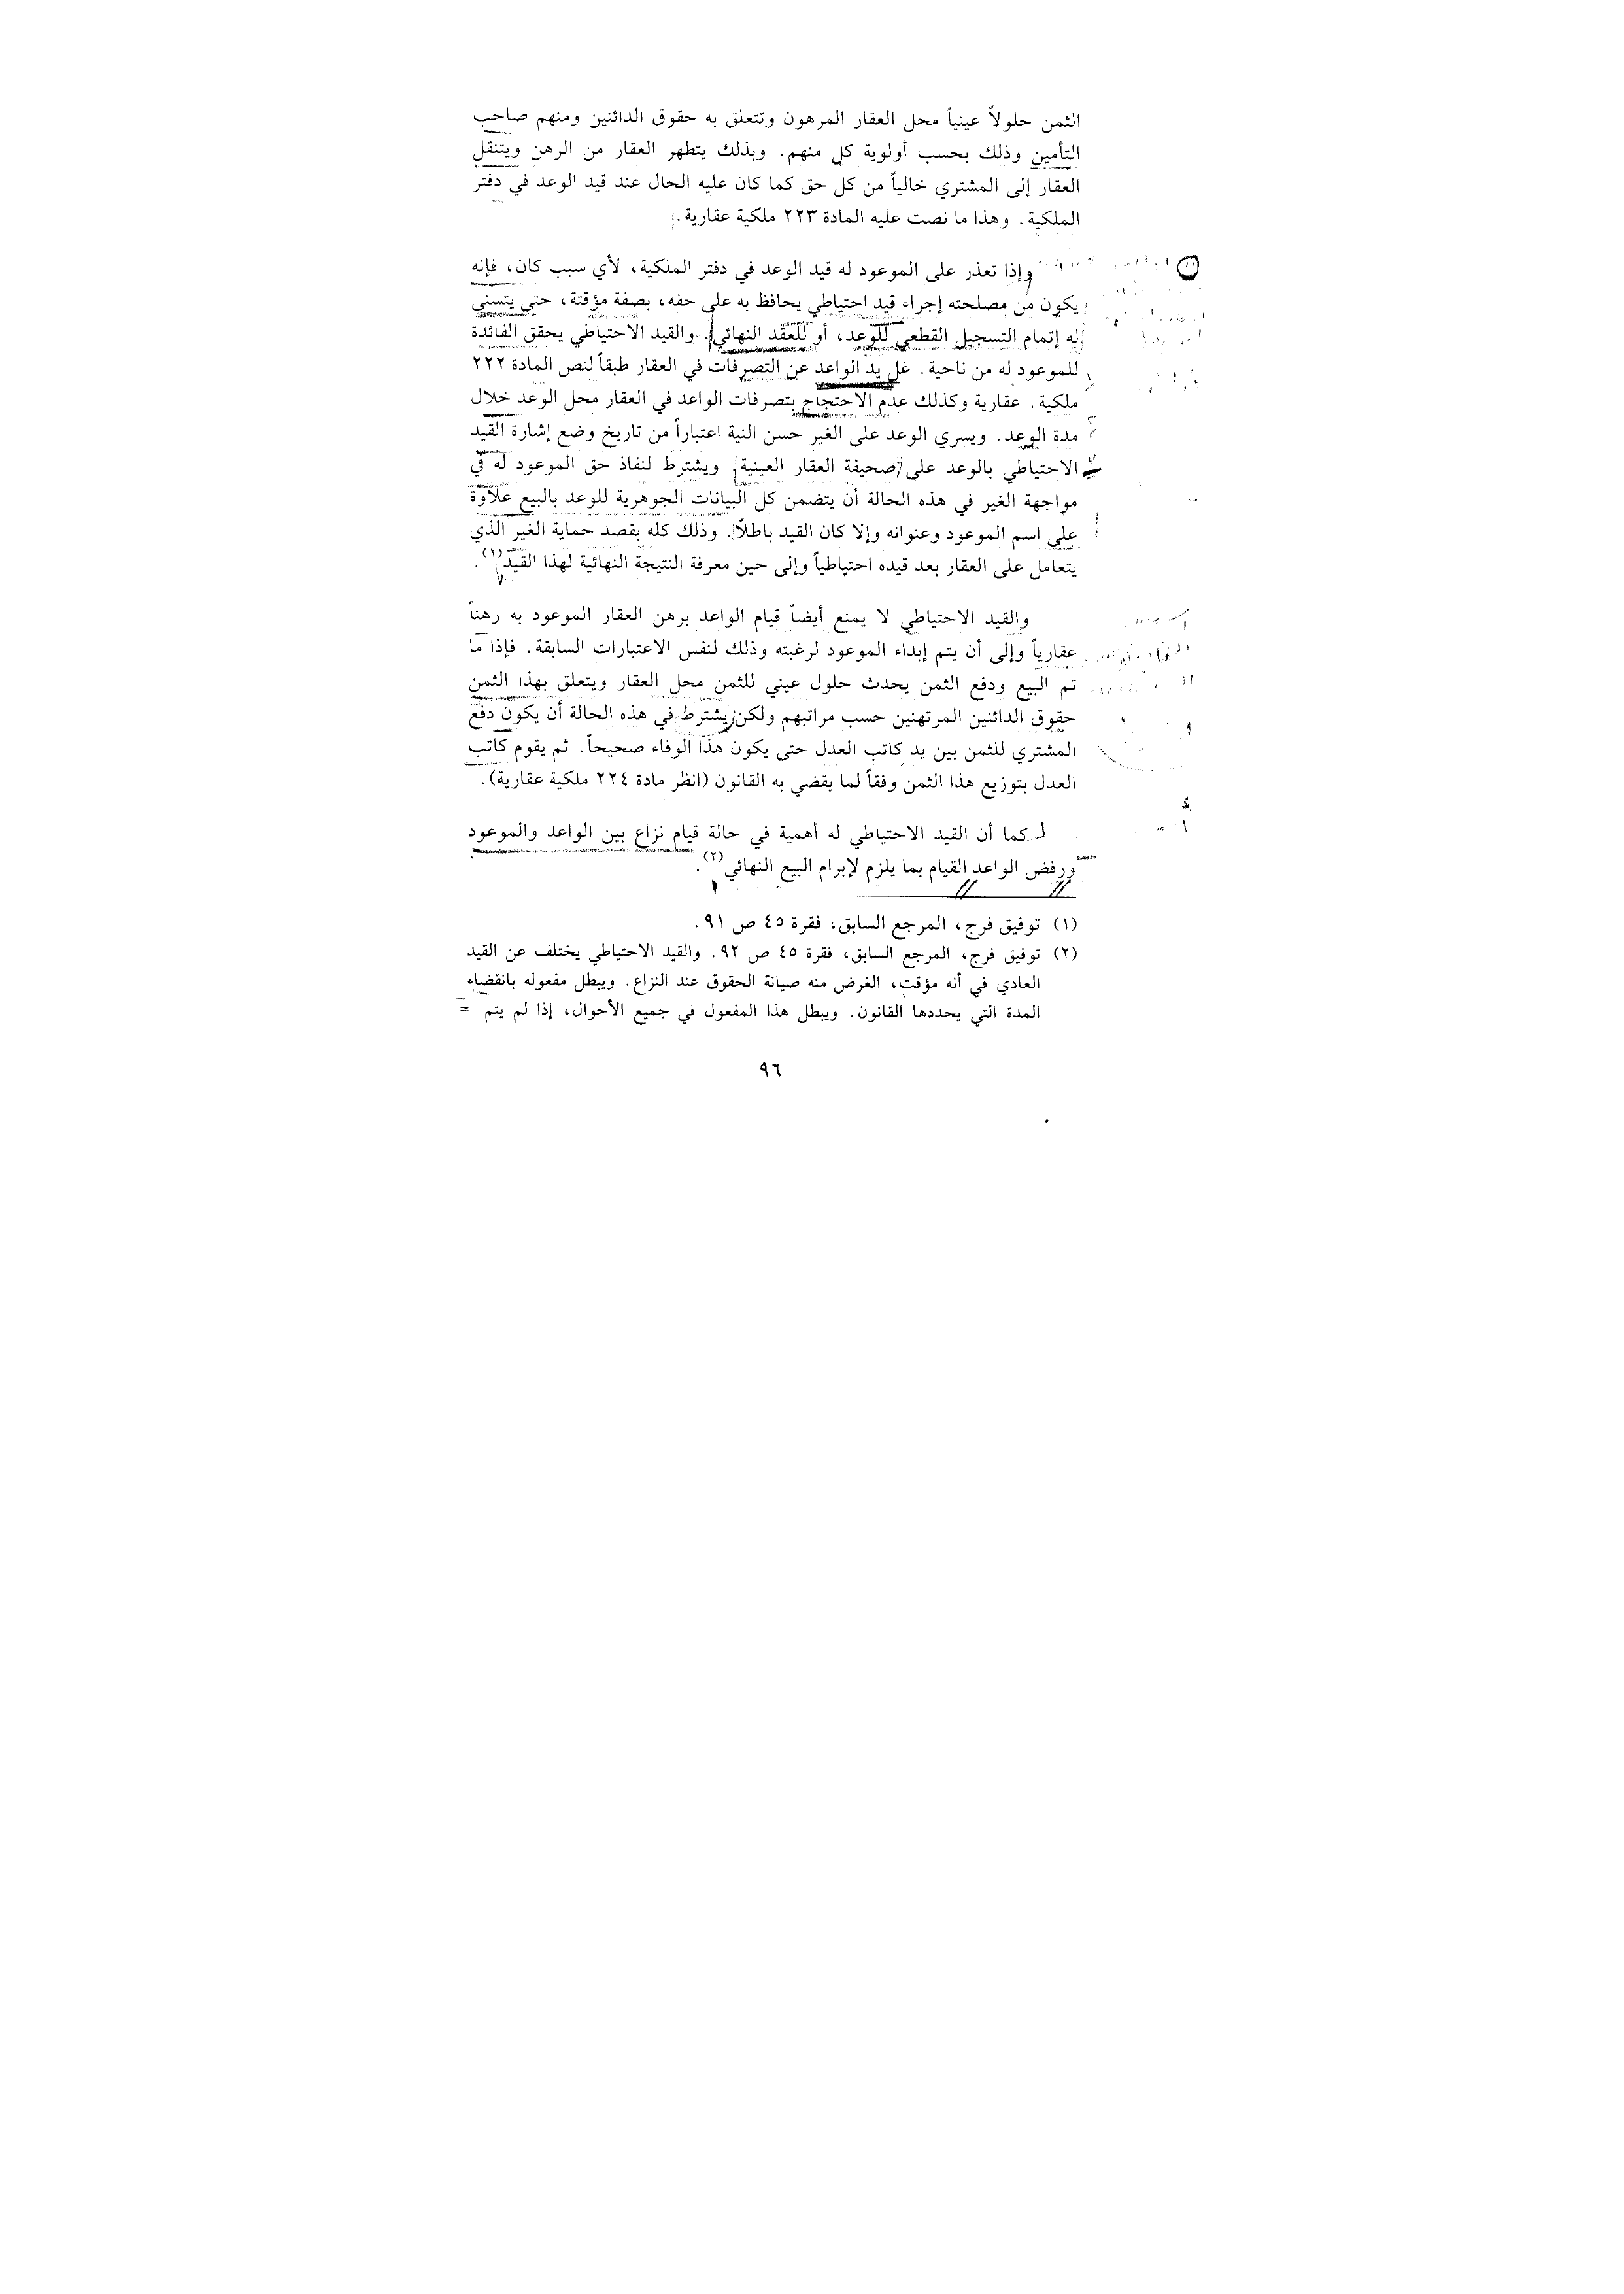 الثمن حلولاً عينياً محل العقار المرهون وتتعلق به حقوق الدائنين ومنهم صاحب
التأمين وذلك بحسب أولوية كل منهم. وبذلك يتطهر العقار من الرهن ويتنقل
العقار إلى المشتري خالياً من كل حق كما كان عليه الحال عند قيد الوعد في دفتر
الملكية. وهذا ما نصت عليه المادة ٢٢٣ ملكية عقارية.
وإذا تعذر على الموعود له قيد الوعد في دفتر الملكية، لأي سبب كان، فإنه
يكون من مصلحته إجراء قيد احتياطي يحافظ به على حقه، بصفة مؤقتة، حتى يتسنى
له إتمام التسجيل القطعي للوعد، أو للعقد النهائي. والقيد الاحتياطي يحقق الفائدة
للموعود له من ناحية. غل يد الواعد عن التصرفات في العقار طبقاً لنص المادة ٢٢٢
ملكية. عقارية وكذلك عدم الاحتجاج بتصرفات الواعد في العقار محل الوعد خلال
مدة الوعد. ويسري الوعد على الغير حسن النية اعتباراً من تاريخ وضع إشارة القيد
الاحتياطي بالوعد على صحيفة العقار العينية ويشترط لنفاذ حق الموعود له في
مواجهة الغير في هذه الحالة أن يتضمن كل البيانات الجوهرية للوعد بالبيع علاوة
على اسم الموعود وعنوانه وإلا كان القيد باطلاً. وذلك كله بقصد حماية الغير الذي
يتعامل على العقار بعد قيده احتياطياً وإلى حين معرفة النتيجة النهائية لهذا القيد(١).
والقيد الاحتياطي لا يمنع أيضاً قيام الواعد برهن العقار الموعود به رهناً
عقارياً وإلى أن يتم إبداء الموعود لرغبته وذلك لنفس الاعتبارات السابقة. فإذا ما
تم البيع ودفع الثمن يحدث حلول عيني للثمن محل العقار ويتعلق بهذا الثمن
حقوق الدائنين المرتهنين حسب مراتبهم ولكن يشترط في هذه الحالة أن يكون دفع
المشتري للثمن بين يد كاتب العدل حتى يكون هذا الوفاء صحيحاً. ثم يقوم كاتب
العدل بتوزيع هذا الثمن وفقاً لما يقضي به القانون (انظر مادة ٢٢٤ ملكية عقارية).
كما أن القيد الاحتياطي له أهمية في حالة قيام نزاع بين الواعد والموعود
ورفض الواعد القيام بما يلزم لإبرام البيع النهائي(٢).
(١) توفيق فرج، المرجع السابق، فقرة ٤٥ ص ٩١.
(٢) توفيق فرج، المرجع السابق، فقرة ٤٥ ص ٩٢. والقيد الاحتياطي يختلف عن القيد
العادي في أنه مؤقت، الغرض منه صيانة الحقوق عند النزاع. ويبطل مفعوله بانقضاء
المدة التي يحددها القانون. ويبطل هذا المفعول في جميع الأحوال، إذا لم يتم =
٩٦